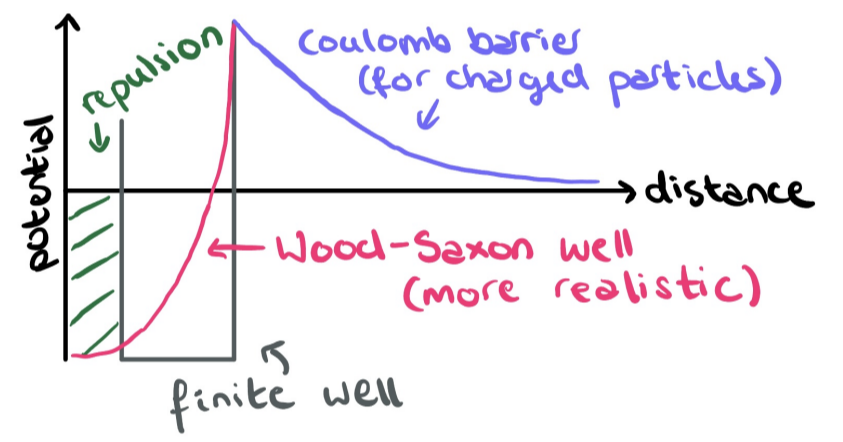 repulsion
Coulomb barrier
(for charged particles)
potential
distance
Wood-Saxon well
(more realistic)
finite well